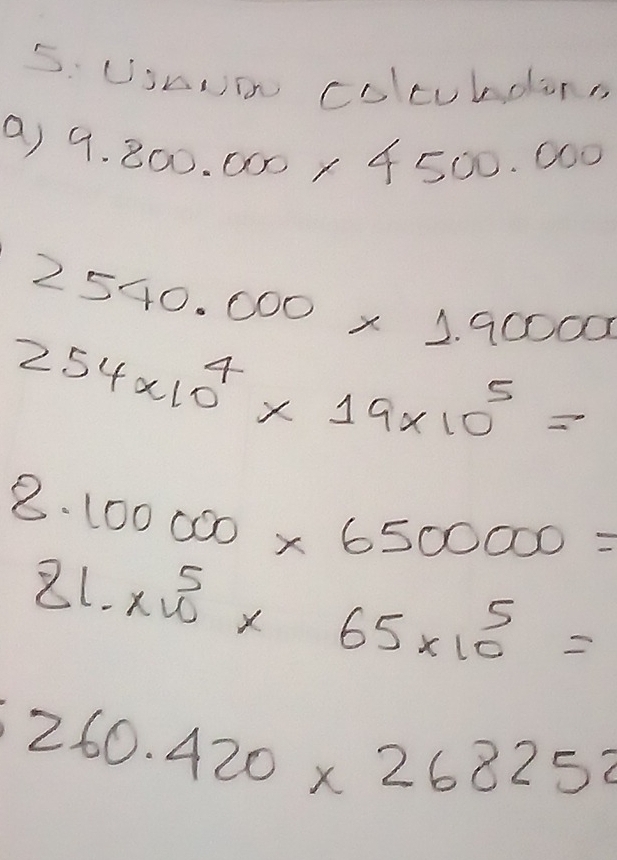 5. Usando calculadora
a) 9.800.000 x 4500.000
2540.000 x 1.900000
254x10⁴ x 19x10⁵ =
8.100 000 x 6500000 =
81.x10⁵ x 65x10⁵ =
260.420 x 268252